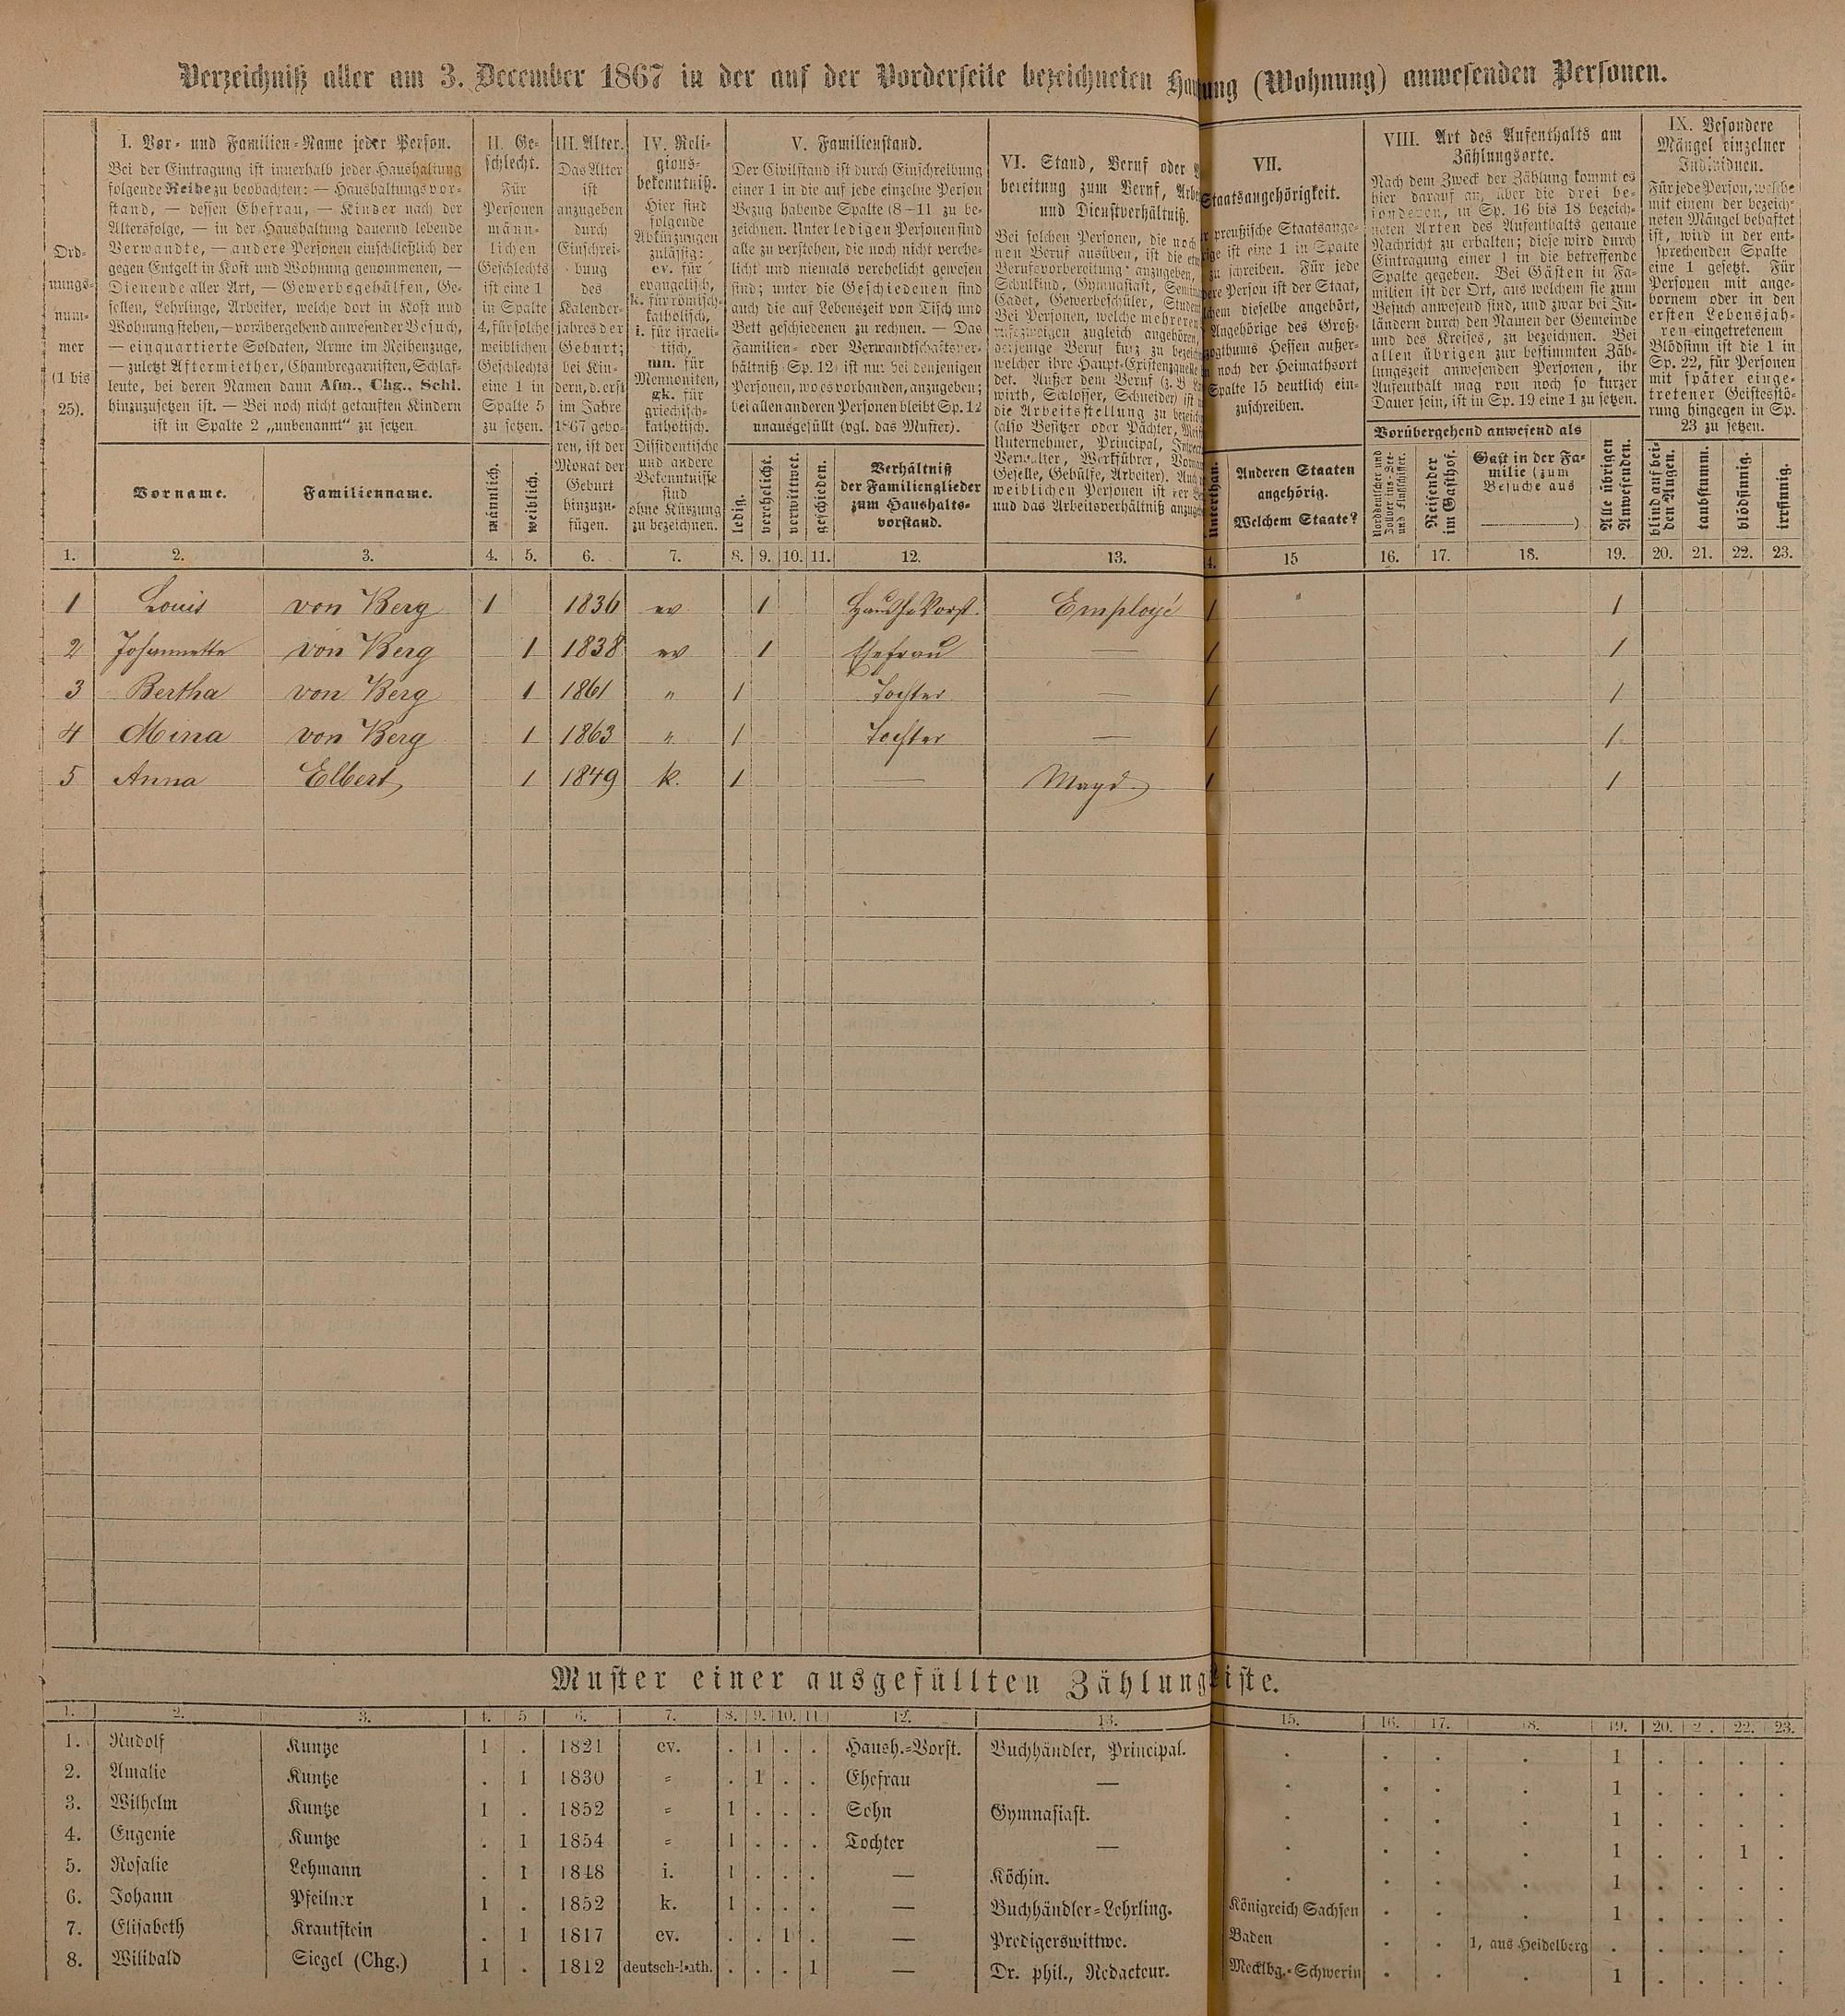 Verzeichniß aller am 3. December 1867 in der auf der Vorderseite bezeichneten (Wohnung) anwesenden Personen.
Ord-
nungs-
num-
mer
(1 bis
25).
I. Vor- und Familien-Name jeder Person.
Bei der Eintragung ist innerhalb jeder Haushaltung
folgende Reihe zu beobachten: — Haushaltungsvor-
stand, — dessen Ehefrau, — Kinder nach der
Altersfolge, — in der Haushaltung dauernd lebende
Verwandte, — andere Personen einschließlich der
gegen Entgelt in Kost und Wohnung genommenen, —
Dienende aller Art, — Gewerbsgehülfen, Ge-
sellen, Lehrlinge, Arbeiter, welche dort in Kost und
Wohnung stehen, — vorübergehend anwesender Besuch,
— einquartierte Soldaten, Arme im Reihenzuge,
— zuletzt Aftermiether, Chambregarnisten, Schlaf-
leute, bei deren Namen dann Afm., Chg., Schl.
hinzuzusetzen ist. — Bei noch nicht getauften Kindern
ist in Spalte 2 „unbenannt“ zu setzen.
Vorname.
Familienname.
II. Ge-
schlecht.
Für
Personen
männ-
lichen
Geschlechts
ist eine 1
in Spalte
4, für solche
weiblichen
Geschlechts
eine 1 in
Spalte 5
zu setzen.
männlich.
weiblich.
III. Alter.
Das Alter
ist
anzugeben
durch
Einschrei-
bung
des
Kalender-
jahres der
Geburt;
bei Kin-
dern, d. erst
im Jahre
1867 gebo-
ren, ist der
Monat der
Geburt
hinzuzu-
fügen.
IV. Reli-
gions-
bekenntniß.
Hier sind
folgende
Abkürzungen
zulässig:
ev. für
evangelisch,
k. für römisch-
katholisch,
i. für israeli-
tisch,
mn. für
Mennoniten,
gk. für
griechisch-
katholisch.
Dissidentische
und andere
Bekenntnisse
sind
ohne Kürzung
zu bezeichnen.
V. Familienstand.
Der Civilstand ist durch Einschreibung
einer 1 in die auf jede einzelne Person
Bezug habende Spalte (8–11) zu be-
zeichnen. Unter ledigen Personen sind
alle zu verstehen, die noch nicht verehe-
licht und niemals verehelicht gewesen
sind; unter die Geschiedenen sind
auch die auf Lebenszeit von Tisch und
Bett geschiedenen zu rechnen. — Das
Familien- oder Verwandtschaftsver-
hältniß (Sp. 12) ist nur bei denjenigen
Personen, wo es vorhanden, anzugeben;
bei allen anderen Personen bleibt Sp. 12
unausgefüllt (vgl. das Muster).
ledig.
verehelicht.
verwittwet.
geschieden.
Verhältniß
der Familienglieder
zum Haushalts-
vorstand.
VI. Stand, Beruf oder
bereitung zum Beruf,
und Dienstverhältniß.
Bei solchen Personen, die noch
nen Beruf ausüben, ist die
Berufsvorbereitung anzugeben,
Schulkind, Gymnasiast,
Cadet, Gewerbeschüler,
Bei Personen, welche mehreren
zugleich angehören,
derjenige Beruf kurz zu
welcher ihre Haupt-Existenzquelle
det. Außer dem Beruf (z. B.
wirth, Schlosser, Schneider) ist
die Arbeitsstellung zu
(also Besitzer oder Pächter,
Unternehmer, Principal,
Verwalter, Werkführer,
Geselle, Gehülfe, Arbeiter).
weiblichen Personen ist der
und das Arbeitsverhältniß
VII.
Staatsangehörigkeit.
preußische Staatsange-
ist eine 1 in Spalte
zu schreiben. Für jede
Person ist der Staat,
dieselbe angehört,
Angehörige des Groß-
Hessen außer-
noch der Heimathsort
Spalte 15 deutlich ein-
zuschreiben.
Anderen Staaten
angehörig.
Welchem Staate?
VIII. Art des Aufenthalts am
Zählungsorte.
Nach dem Zweck der Zählung kommt es
hier darauf an, über die drei be-
sonderen, in Sp. 16 bis 18 bezeich-
neten Arten des Aufenthalts genaue
Nachricht zu erhalten; diese wird durch
Eintragung einer 1 in die betreffende
Spalte gegeben. Bei Gästen in Fa-
milien ist der Ort, aus welchem sie zum
Besuch anwesend sind, und zwar bei In-
ländern durch den Namen der Gemeinde
und des Kreises, zu bezeichnen. Bei
allen übrigen zur bestimmten Zäh-
lungszeit anwesenden Personen, ihr
Aufenthalt mag von noch so kurzer
Dauer sein, ist in Sp. 19 eine 1 zu setzen.
Vorübergehend anwesend als
Norddeutscher und
Zollvereins-See-
und Flußschiffer.
Reisender
im Gasthof.
Gast in der Fa-
milie (zum
Besuche aus
)
Alle übrigen
Anwesenden.
IX. Besondere
Mängel einzelner
Individuen.
Für jede Person, welche
mit einem der bezeich-
neten Mängel behaftet
ist, wird in der ent-
sprechenden Spalte
eine 1 gesetzt. Für
Personen mit ange-
bornem oder in den
ersten Lebensjah-
ren eingetretenem
Blödsinn ist die 1 in
Sp. 22, für Personen
mit später einge-
tretener Geistesstö-
rung hingegen in Sp.
23 zu setzen.
blind auf bei-
den Augen.
taubstumm.
blödsinnig.
irrsinnig.
1. 2. 3. 4. 5. 6. 7. 8. 9. 10. 11. 12. 13. 4. 15 16. 17. 18. 19. 20. 21. 22. 23.
1 Louis von Berg 1 1836 ev. 1 Haush. Vorst. Employé 1 " 1
2 Johannette von Berg 1 1838 ev 1 Ehefrau — 1 1
3 Bertha von Berg 1 1861 " 1 Tochter — 1 1
4 Mina von Berg 1 1863 " 1 Tochter — 1 1
5 Anna Elbert 1 1849 k. 1 — Magd 1 1
Muster einer ausgefüllten Zählungsliste.
1. 2. 3. 4. 5 6. 7. 8. 9. 10. 11. 12. 13. 15. 16. 17. 18. 19. 20. 2 . 22. 23.
1. Rudolf Kuntze 1 . 1821 ev. . 1 . . Haush.-Vorst. Buchhändler, Principal. . . . . 1 . . . .
2. Amalie Kuntze . 1 1830 = . 1 . . Ehefrau — . . . . 1 . . . .
3. Wilhelm Kuntze 1 . 1852 = 1 . . . Sohn Gymnasiast. . . . . 1 . . . .
4. Eugenie Kuntze . 1 1854 = 1 . . . Tochter — . . . . 1 . . 1 .
5. Rosalie Lehmann . 1 1848 i. 1 . . . — Köchin. . . . . 1 . . . .
6. Johann Pfeilner 1 . 1852 k. 1 . . . — Buchhändler-Lehrling. Königreich Sachsen . . . 1 . . . .
7. Elisabeth Krautstein . 1 1817 ev. . . 1 . — Predigerswittwe. Baden . . 1, aus Heidelberg . . . . .
8. Wilibald Siegel (Chg.) 1 . 1812 deutsch-kath. . . . 1 — Dr. phil., Redacteur. Mecklbg.-Schwerin . . . 1 . . . .